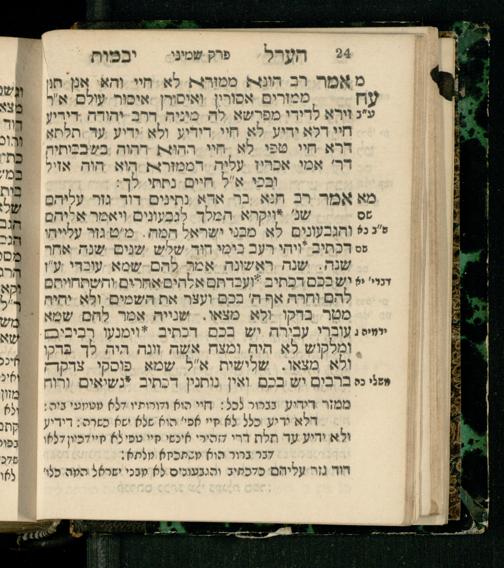 24 הערל פרק שמיני יבמות
מ אמר רב הונא ממזרא לא חיי והא אנן תנן
עח ממזרים אסורין ואיסורן איסור עולם א"ר
ע"ב זירא לדידי מפרשא לה מיניה דרב יהודה דידיע
חיי דלא ידיע לא חיי דידיע ולא ידיע עד תלתא
דרא חיי טפי לא חיי ההוא דהוה בשבבותיה
דר' אמי אכריז עליה דממזרא הוא הוה אזיל
ובכי א"ל חיים נתתי לך:
מא אמר רב חנא בר אדא נתינים דוד גזר עליהם
שם שנ' *ויקרא המלך לגבעונים ויאמר אליהם
ש"ב כא והגבעונים לא מבני ישראל המה. מ"ט גזר עלייהו
שם דכתיב *ויהי רעב בימי דוד שלש שנים שנה אחר
שנה. שנה ראשונה אמר להם שמא עובדי ע"ז
דברי' יא יש בכם דכתיב *ועבדתם אלהים אחרים והשתחויתם
להם וחרה אף ה' בכם ועצר את השמים ולא יהיה
מטר בדקו ולא מצאו. שנייה אמר להם שמא
ירמיה ג עוברי עבירה יש בכם דכתיב *וימנעו רביבים
ומלקוש לא היה ומצח אשה זונה היה לך בדקו
ולא מצאו. שלישית א"ל שמא פוסקי צדקה
משלי כה ברבים יש בכם ואין נותנין דכתיב *נשיאים ורוח
ממזר דידוע בברור לכל: חיי הוא ודורותיו דלא מטמעי ביה:
דלא ידיע כלל לא חיי אפי' הוא שלא ישא כשרה: דידיע
ולא ידיע עד תלת דרי זהירי אינשי חיי טפי לא חיי דכיון דלאו
דבר ברור הוא משתכחא מלתא:
דוד גזר עליהם כדכתיב והגבעונים לא מבני ישראל המה כלו'